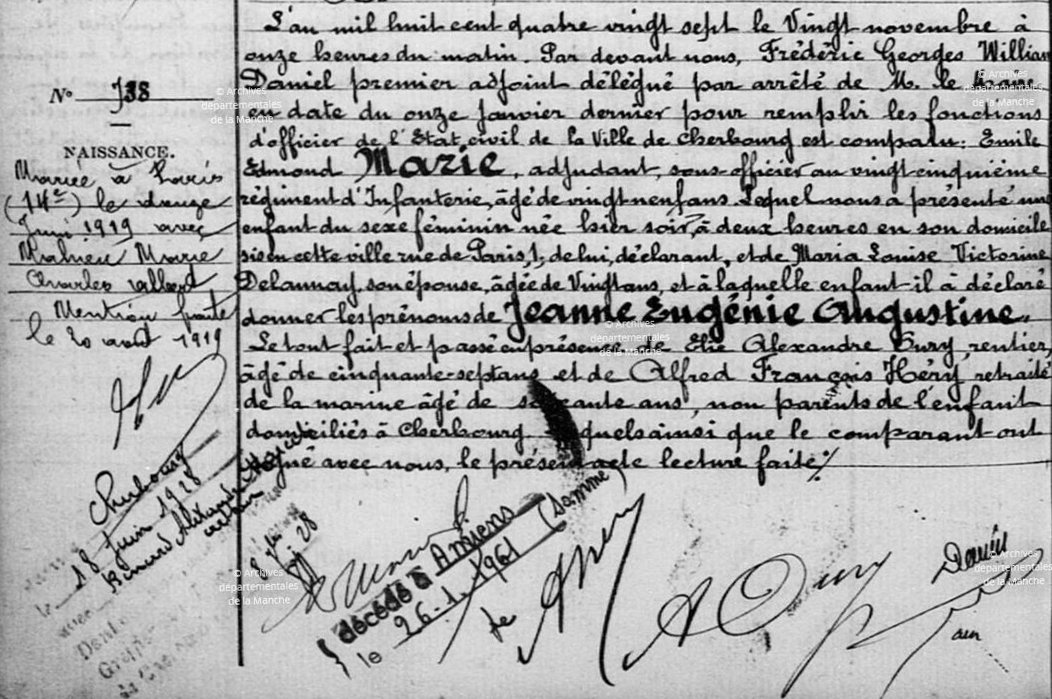 L'an mil huit cent quatre vingt sept le Vingt novembre à
onze heures du matin. Par devant nous, Frédéric Georges William
Daniel premier adjoint délégué par arrêté de M. le
en date du onze Janvier dernier pour remplir les fonctions
d'officier de l'Etat civil de la Ville de Cherbourg est comparu: Emile
Edmond Marie, adjudant, sous-officier au vingt cinquième
régiment d'Infanterie, âgé de vingt neuf ans. Lequel nous a présenté un
enfant du sexe féminin née hier soir, à deux heures en son domicile
sis en cette ville rue de Paris, 1, de lui, déclarant, et de Maria Louise Victorine
Delaunay, son épouse, âgée de Vingt ans, et à laquelle enfant il à déclaré
donner les prénoms de Jeanne Eugénie Augustine.
Le tout fait et passé en présence de Elie Alexandre Eury, rentier,
âgé de cinquante-sept ans et de Alfred François Héry retraité
de la marine âgé de soixante ans, non parents de l'enfant
domiciliés à Cherbourg quels ainsi que le comparant ont
signé avec nous, le présent acte lecture faite ./.
N° 738
NAISSANCE.
Mariée à Paris
(14e) le douze
Juin 1919 avec
Mahieu Marie
Charles Albert
Mention faite
le 20 août 1919
Cherbourg
le 18 Juin 1928
avec
décédé à Amiens (Somme)
le 26.1.1961
Daniel
© Archives
départementales
de la Manche
© Archives
départementales
de la Manche
© Archives
départementales
de la Manche
© Archives
départementales
de la Manche
© Archives
départementales
de la Manche